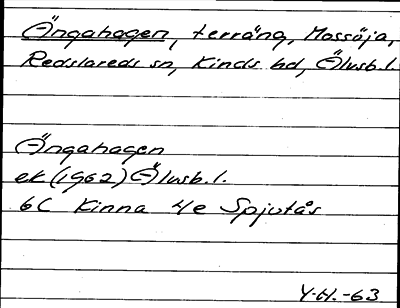 Ängahagen, terräng, Mossöja,
Redslareds sn, Kinds hd, Älvsb.l.
Ängahagen
ek (1962) Älvsb.l.
6C Kinna 4e Spjutås
Y.H.-63